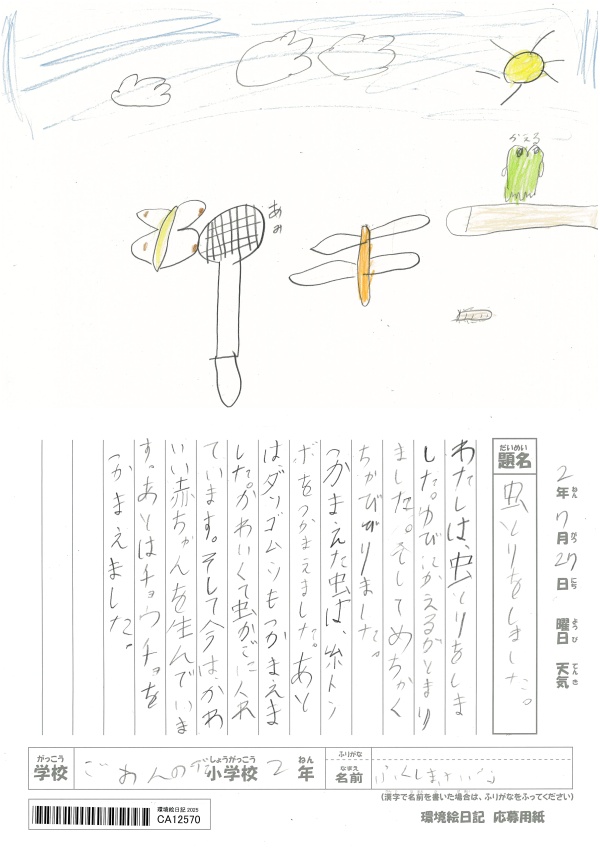 かえる
あみ
2年7月27日 曜日 天気
ねん がつ にち ようび てんき
だいめい
題名 虫とりをしました。
わたしは、虫とりをしま
した。ゆびにかえるがとまり
ました。そしてめちゃく
ちゃびびりました。
つかまえた虫は、糸トン
ボをつかまえました。あと
は、ダンゴムシもつかまえま
した。かわいくて虫かごに入れ
ています。そして今は、かわ
いい赤ちゃんを生んでいま
す。あとはチョウチョを
つかまえました。
がっこう しょうがっこう ねん ふりがな
学校 ごおんのだ小学校 2年
なまえ
名前 ふくしま
(漢字で名前を書いた場合は、ふりがなをふってください)
環境絵日記 応募用紙
環境絵日記 2025
CA12570